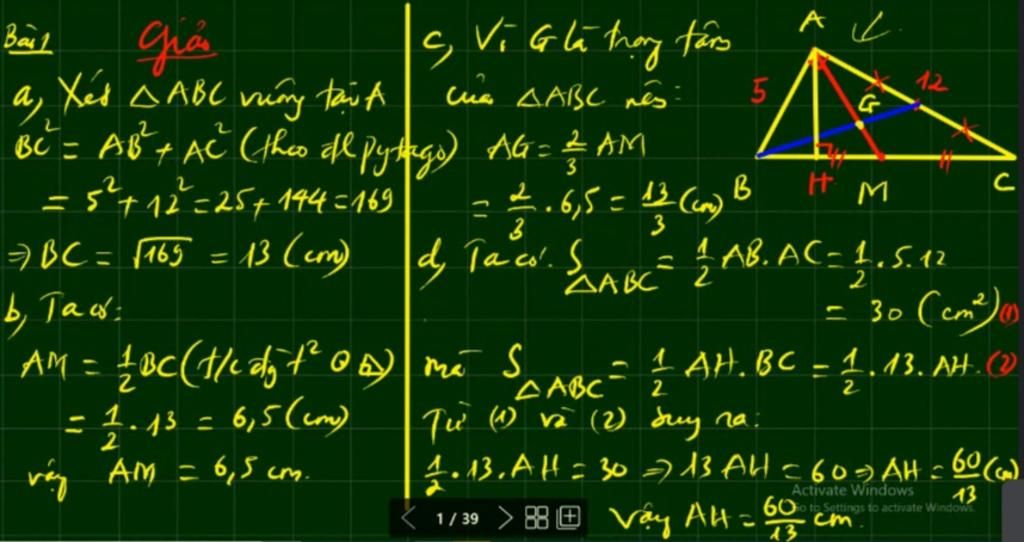 Bài 1
Giải
a, Xét △ABC vuông tại A
BC² = AB² + AC² (theo đl pytago)
= 5² + 12² = 25 + 144 = 169
⇒ BC = √169 = 13 (cm)
b, Ta có:
AM = 1/2 BC (t/c đg t²
= 1/2 . 13 = 6,5 (cm)
vậy AM = 6,5 cm.
c, Vì G là trọng tâm
của △ABC nên:
AG = 2/3 AM
= 2/3 . 6,5 = 13/3 (cm)
d, Ta có: S△ABC = 1/2 AB. AC = 1/2 . 5. 12
= 30 (cm²) (1)
mà S△ABC = 1/2 AH. BC = 1/2 . 13. AH. (2)
Từ (1) và (2) suy ra:
1/2 . 13. AH = 30 ⇒ 13 AH = 60 ⇒ AH = 60/13 (cm)
Vậy AH = 60/13 cm.
A
5
12
G
B
H
M
C
Activate Windows
Go to Settings to activate Windows.
1 / 39